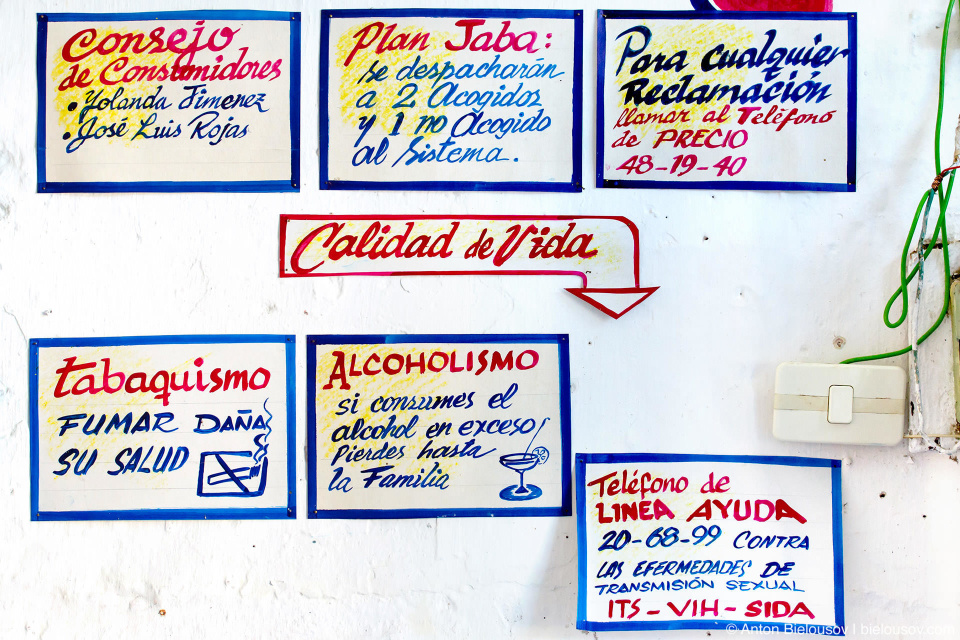 Consejo
de Consumidores
• Yolanda Jimenez
• José Luis Rojas
Plan Jaba:
se despacharán
a 2 Acogidos
y 1 no Acogido
al Sistema.
Para cualquier
Reclamación
llamar al Teléfono
de PRECIO
48-19-40
Calidad de Vida
tabaquismo
FUMAR DAÑA
SU SALUD
ALCOHOLISMO
si consumes el
alcohol en exceso
Pierdes hasta
la Familia
Teléfono de
LINEA AYUDA
20-68-99 CONTRA
LAS EFERMEDADES DE
TRANSMISIÓN SEXUAL
ITS-VIH-SIDA
© Anton Bielousov | bielousov.com